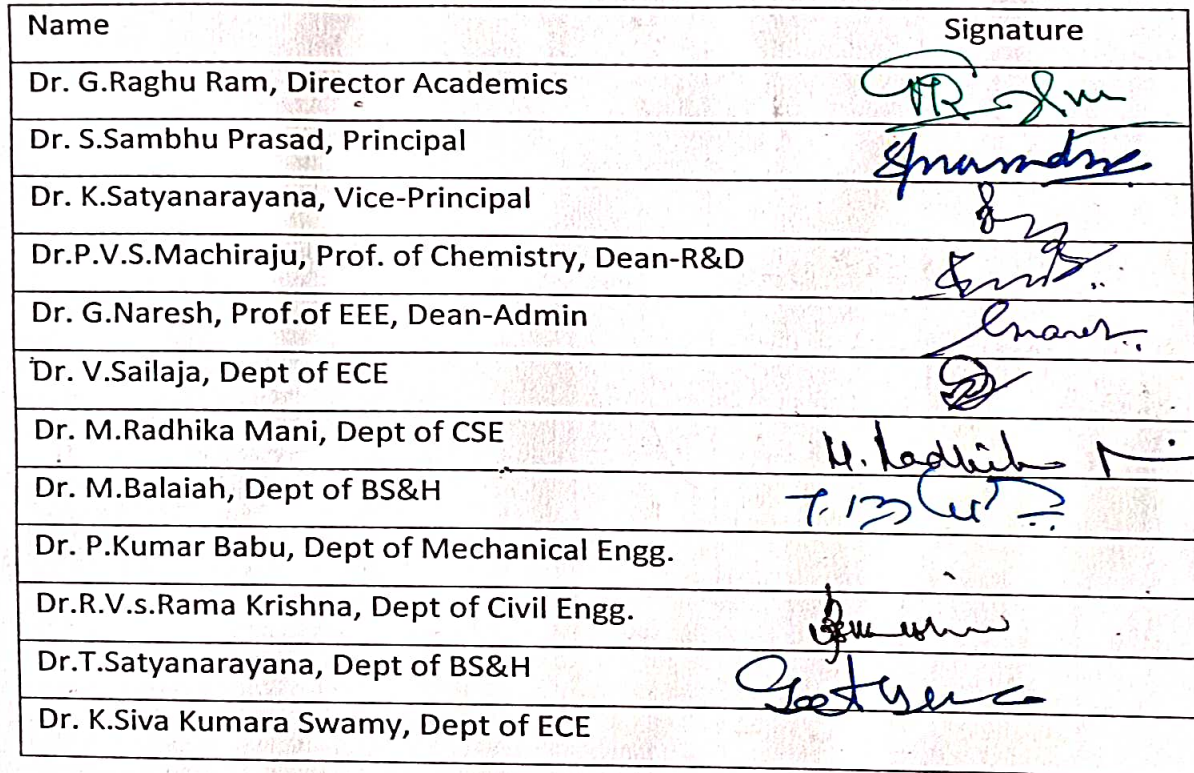 Name Signature
Dr. G.Raghu Ram, Director Academics
Dr. S.Sambhu Prasad, Principal
Dr. K.Satyanarayana, Vice-Principal
Dr.P.V.S.Machiraju, Prof. of Chemistry, Dean-R&D
Dr. G.Naresh, Prof.of EEE, Dean-Admin
Dr. V.Sailaja, Dept of ECE
Dr. M.Radhika Mani, Dept of CSE M. Radhika
Dr. M.Balaiah, Dept of BS&H
Dr. P.Kumar Babu, Dept of Mechanical Engg.
Dr.R.V.s.Rama Krishna, Dept of Civil Engg.
Dr.T.Satyanarayana, Dept of BS&H
Dr. K.Siva Kumara Swamy, Dept of ECE